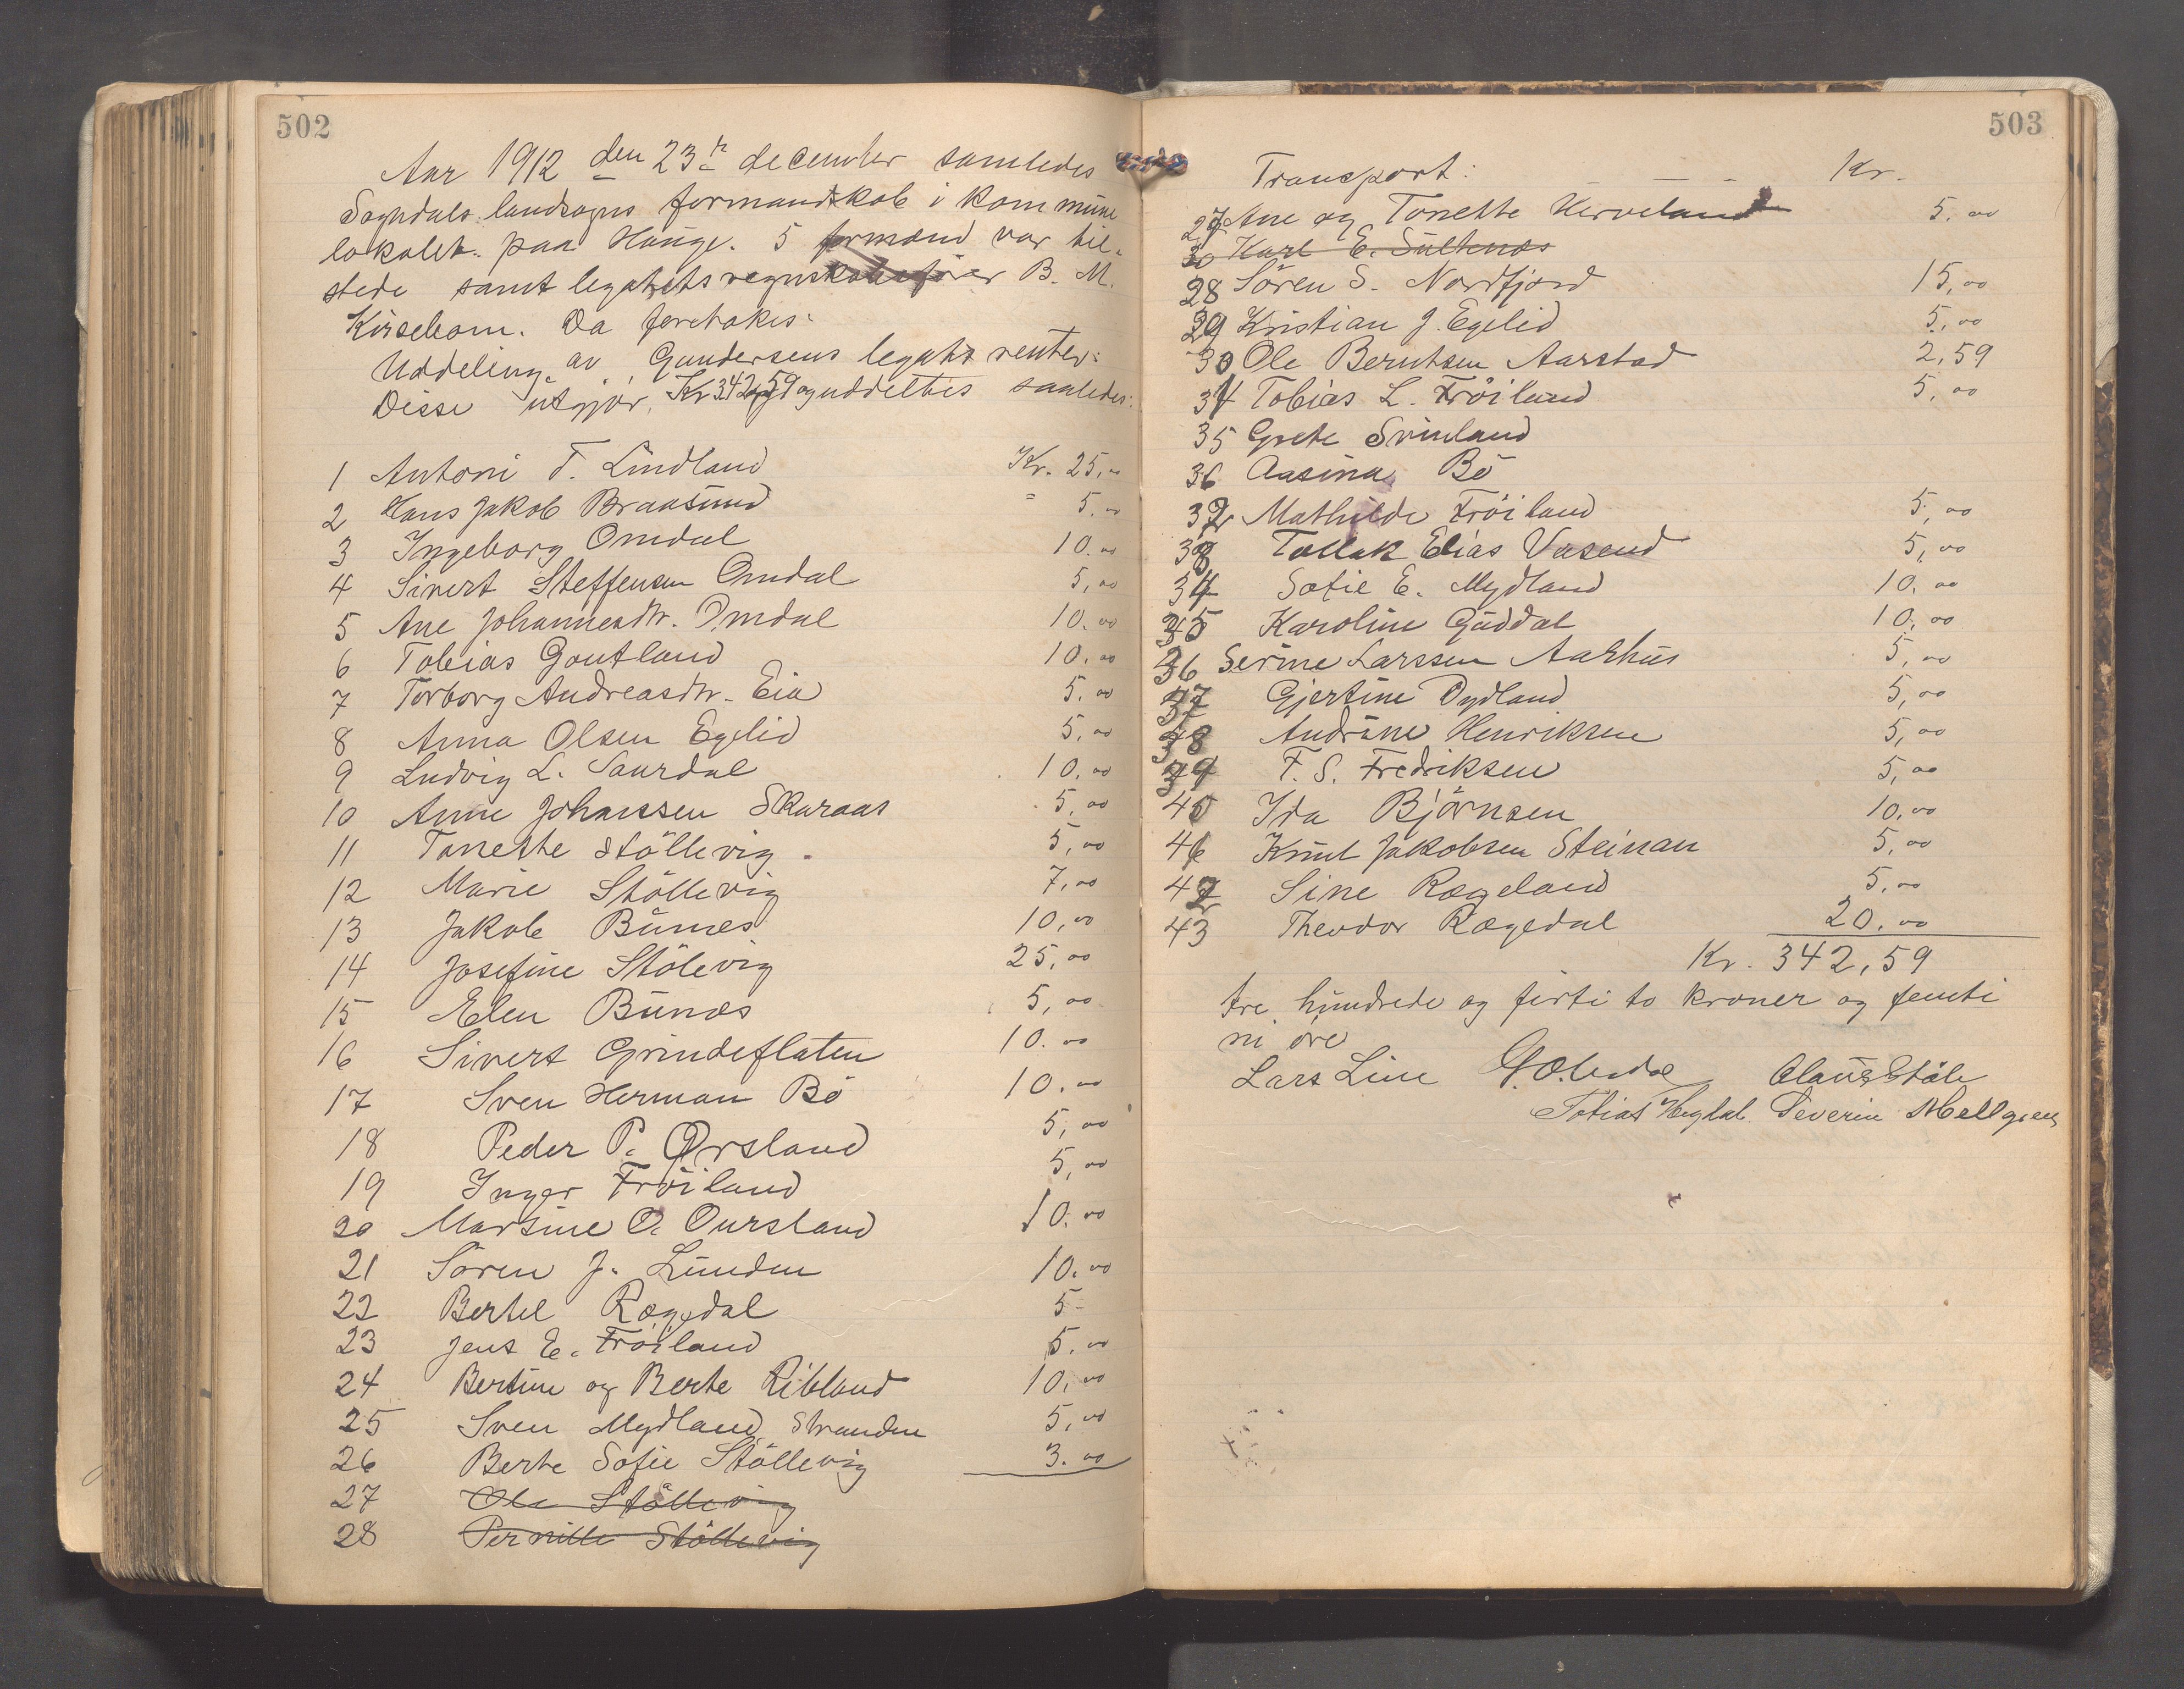 502
Aar 1912 den 23de december samledes
Sogndals landsogns formandskab i kommune
lokalet paa Hauge. 5 formænd var til-
stede samt legatets regnskabsfører B. M.
Kirsebom. Da foretokes:
Uddeling av Gundersens legats renter.
Disse utgjør Kr 342,59 og uddeltes saaledes:
1 Antoni T. Lindland Kr. 25,00
2 Hans Jakob Braasund " 5,00
3 Ingeborg Omdal 10.00
4 Sivert Steffensen Omdal 5,00
5 Ane Johannesdtr. Omdal 10.00
6 Tobias Goutland 10.00
7 Torborg Andreasdtr. Eia 5.00
8 Anna Olsen Egelid 5,00
9 Ludvig L. Saurdal 10,00
10 Anne Johanssen Skaraas 5,00
11 Tonette Stöllevig 5,00
12 Marie Stöllevig 7,00
13 Jakob Bünes 10,00
14 Josefine Stölevig 25,00
15 Elen Bünæs 5,00
16 Sivert Grindeflaten 10.00
17 Sven Herman Bö 10.00
18 Peder P. Ørsland 5,00
19 Inger Fröiland 5,00
20 Martine O. Oursland 10.00
21 Sören J. Lunden 10.00
22 Bertel Rægedal 5-
23 Jens E. Fröiland 5.00
24 Bertine og Berte Ribland 10,00
25 Sven Mydland Stranden 5,00
26 Berte Sofie Stöllevig 3.00
27 Ole Stöllevig
28 Pernille Stöllevig
503
Transport: Kr.
27 Ane og Tonette Herveland 5.00
30 Karl E. Sültenæs
28 Sören S. Nordfjord 15,00
29 Kristian J. Egelid 5,00
30 Ole Berntsen Aarstad 2,59
31 Tobias L. Fröiland 5,00
35 Grete Svinland
36 Aasina Bö
32 Mathilde Fröiland 5,00
33 Tollak Elias Vasend 5,00
34 Sofie E. Mydland 10.00
35 Karoline Guddal 10,00
36 Serine Larssen Aarhus 5,00
37 Gjertine Dydland 5,00
38 Andrine Henriksen 5,00
39 F. S. Fredriksen 5,00
40 Ida Björnsen 10.00
41 Knut Jakobsen Steinan 5,00
42 Sine Rægeland 5,00
43 Theodor Rægedal 20.00
Kr. 342,59
tre hundrede og førti to kroner og femti
ni øre
Lars Line Olaus Støle
Tobias Severin Mellgren